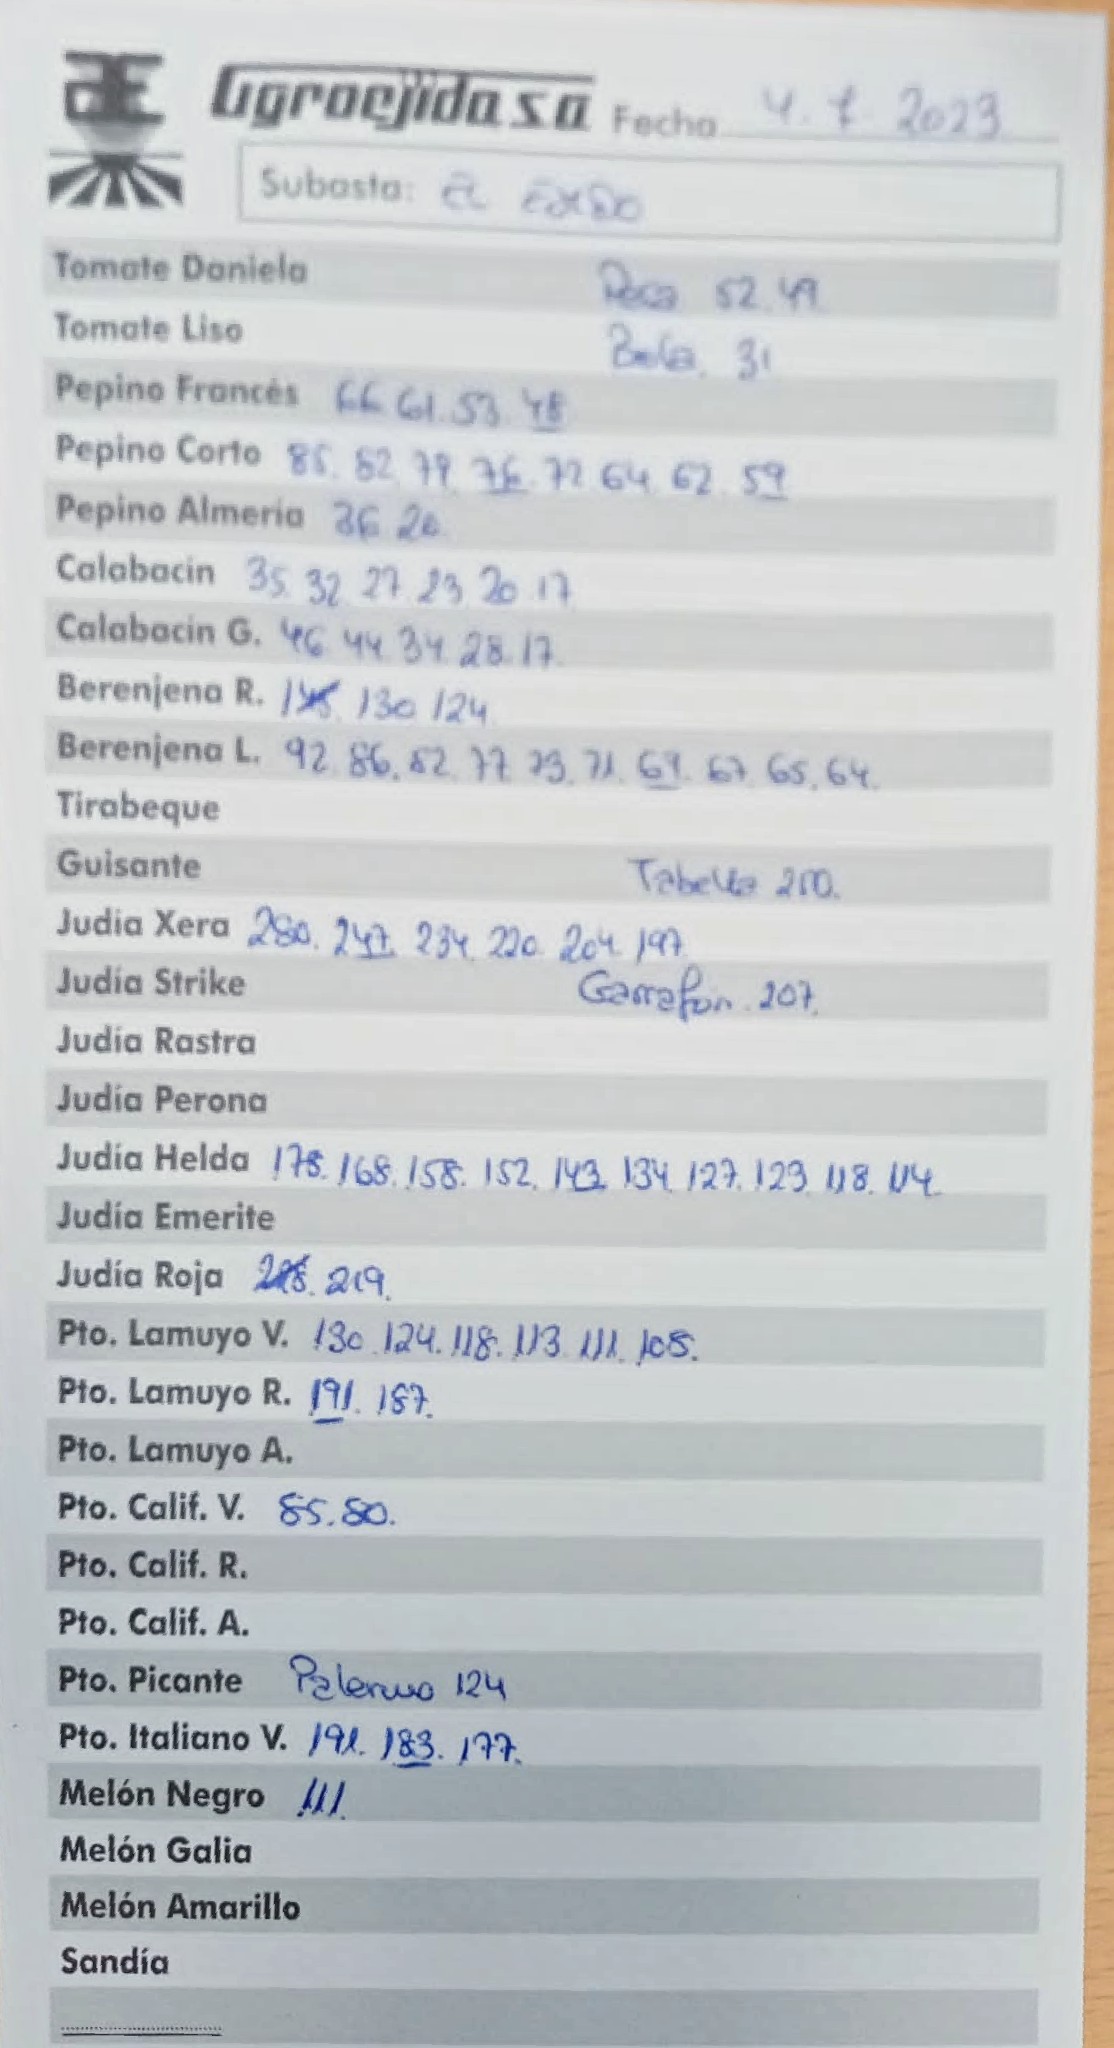 AE Agroejido s.a Fecha 4. 7. 2023
Subasta: EL EJIDO
Tomate Daniela Roca 52. 49
Tomate Liso Bola. 31
Pepino Francés 66 61. 53. 48
Pepino Corto 85. 82 79. 76. 72 64 62. 59
Pepino Almería 36. 20.
Calabacín 35. 32 27. 23. 20. 17
Calabacín G. 46 44. 34. 28. 17.
Berenjena R. 130 124
Berenjena L. 92. 86. 82. 77. 73. 71. 69. 67. 65. 64.
Tirabeque
Guisante Tabella 200.
Judía Xera 280. 247. 234. 220. 204. 197.
Judía Strike Garrafon. 207.
Judía Rastra
Judía Perona
Judía Helda 178. 168. 158. 152. 143. 134. 127. 123. 118. 114.
Judía Emerite
Judía Roja 219.
Pto. Lamuyo V. 130. 124. 118. 113. 111. 105.
Pto. Lamuyo R. 191. 187.
Pto. Lamuyo A.
Pto. Calif. V. 85. 80.
Pto. Calif. R.
Pto. Calif. A.
Pto. Picante Palermo 124
Pto. Italiano V. 191. 183. 177.
Melón Negro 111.
Melón Galia
Melón Amarillo
Sandía